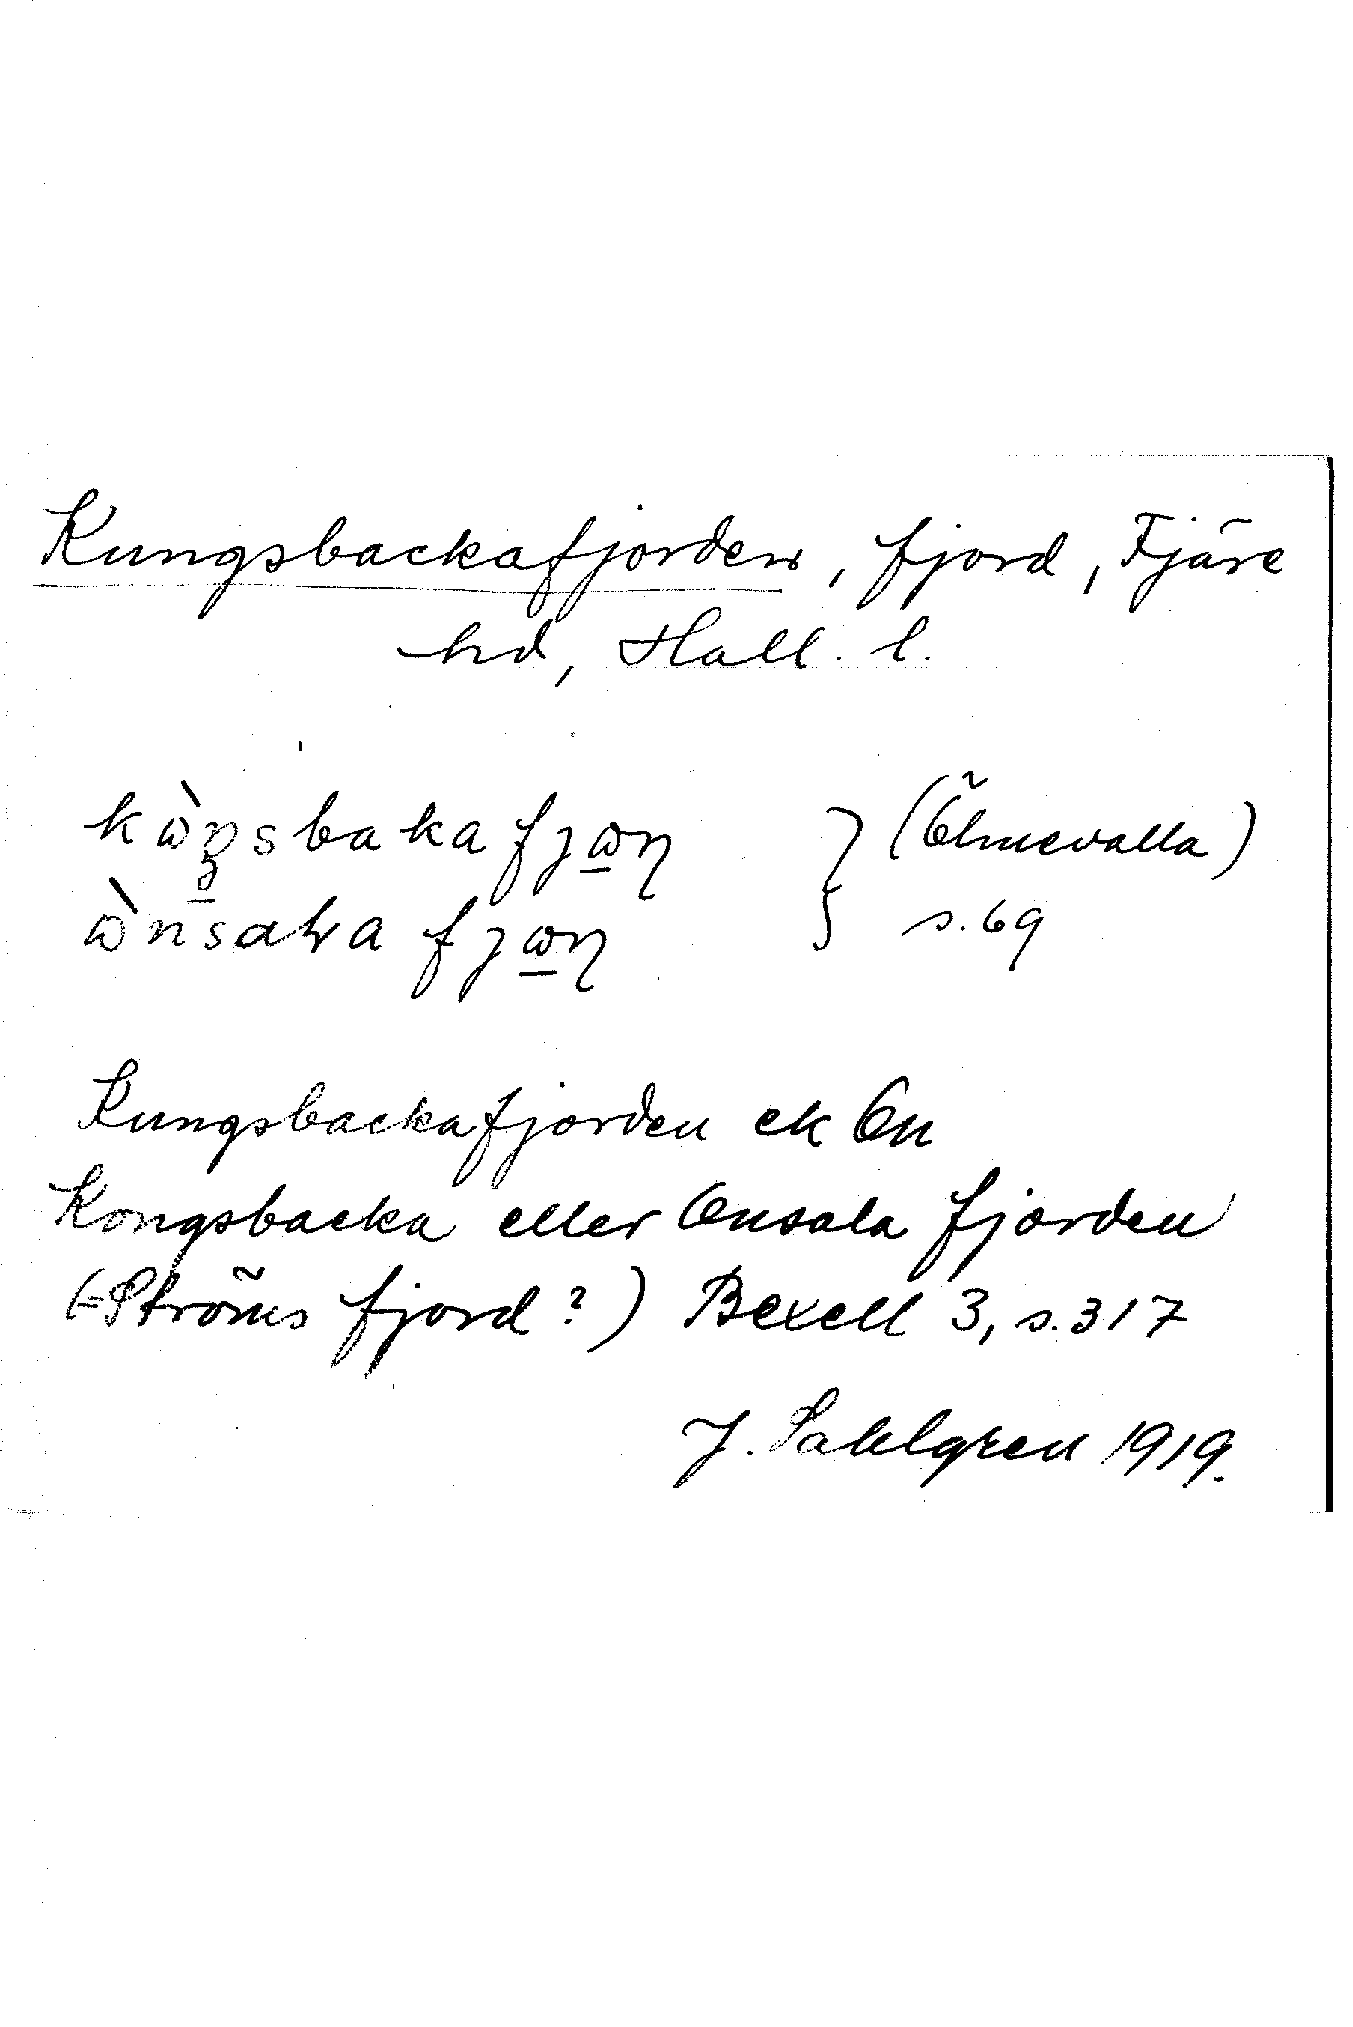 Kungsbackafjorden, fjord, Fjäre
hd, Hall. l.
kὼŋsbaka fjωη } (Ölmevalla)
ὼnsała fjωη } s. 69
Kungsbackafjorden ek On
Kongsbacka eller Onsala fjorden
(=Ströms fjord?) Bexell 3, s. 317
J. Sahlgren 1919.